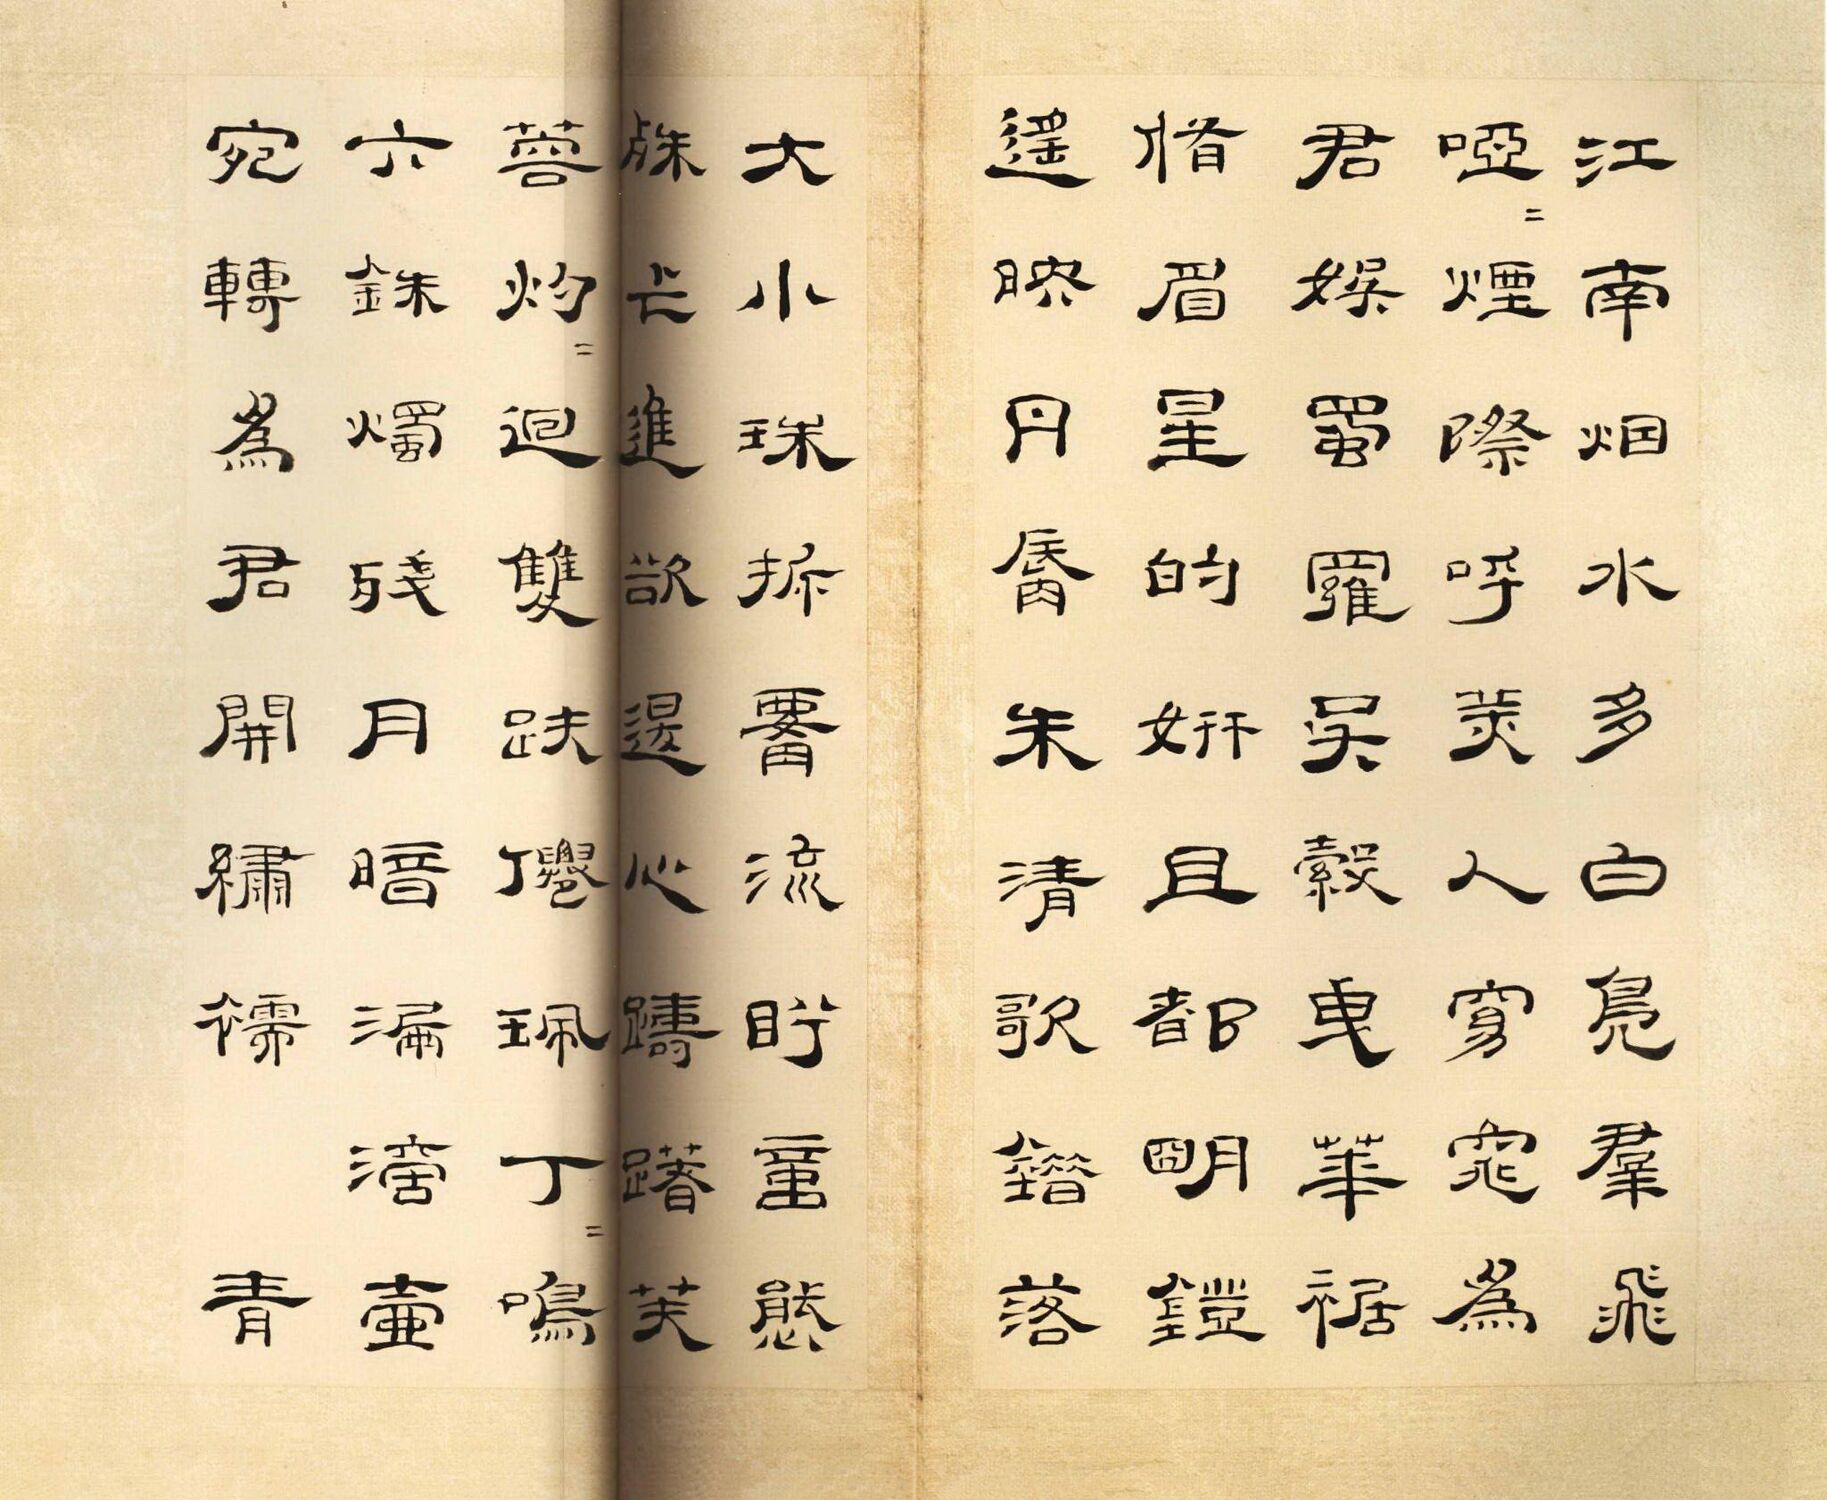 江南烟水多白鳧羣飛
啞〻煙際呼美人窈窕為
君娛蜀羅吳縠曳華裾
脩眉星的妍且都明鐙
遙映丹脣朱清歌錯落
大小珠折腰流盻意態
殊乍進欲退心躊躇芙
蓉灼〻迴雙趺僊珮丁〻鳴
六銖燭殘月暗漏滴壺
宛轉為君開繡襦 青